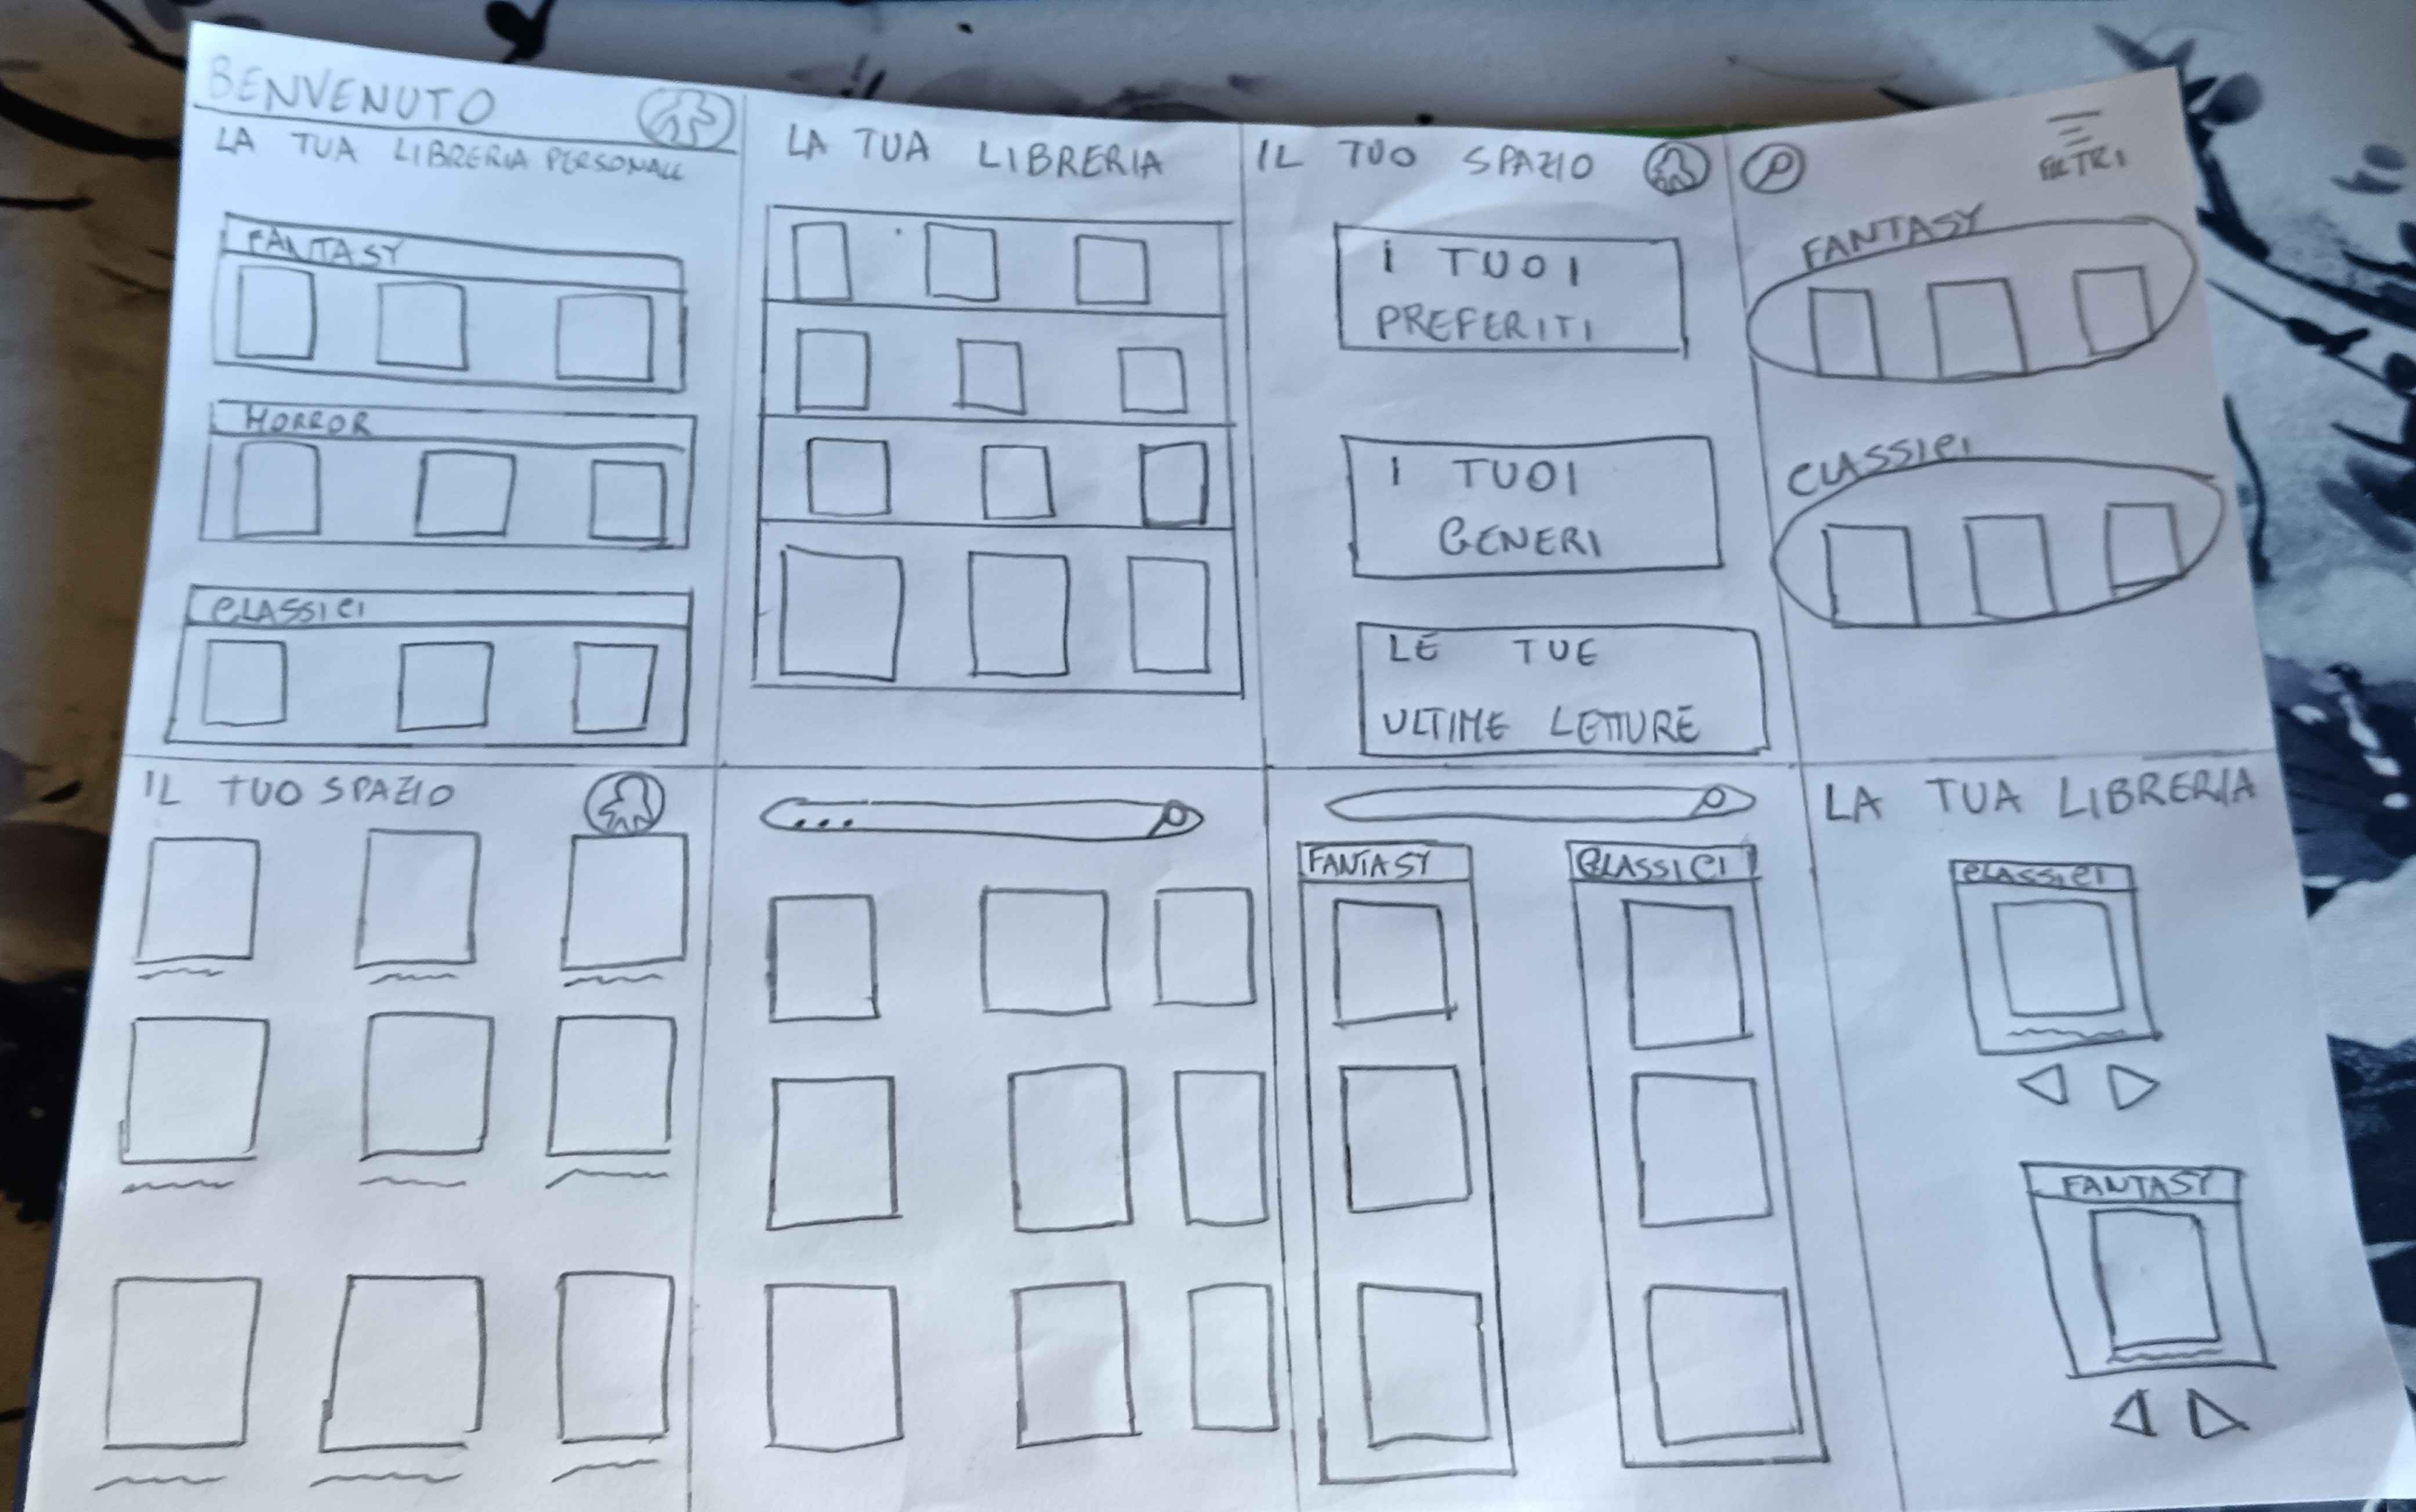 BENVENUTO
LA TUA LIBRERIA PERSONALE
FANTASY
HORROR
CLASSICI
LA TUA LIBRERIA
IL TUO SPAZIO
I TUOI
PREFERITI
I TUOI
GENERI
LE TUE
ULTIME LETTURE
FILTRI
FANTASY
CLASSICI
IL TUO SPAZIO
...
FANTASY
CLASSICI
LA TUA LIBRERIA
CLASSICI
FANTASY